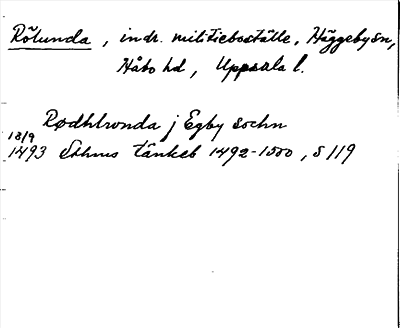 Rölunda, indr. militieboställe, Häggeby sn,
Håbo hd, Uppsala l.
Rødhlwnda j Egby sochn
18/9
1493 Sthms tänkeb 1492-1500, S 119